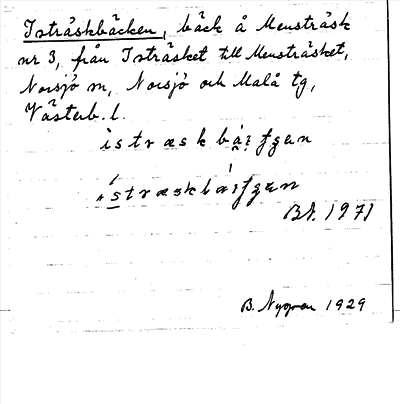 Isträskbäcken, bäck å Mensträsk
nr 3, från Isträsket till Mensträsket,
Norsjö sn, Norsjö och Malå tg,
Västerb. l.
istræskb
istræskb
1971
B. Nygren 1929